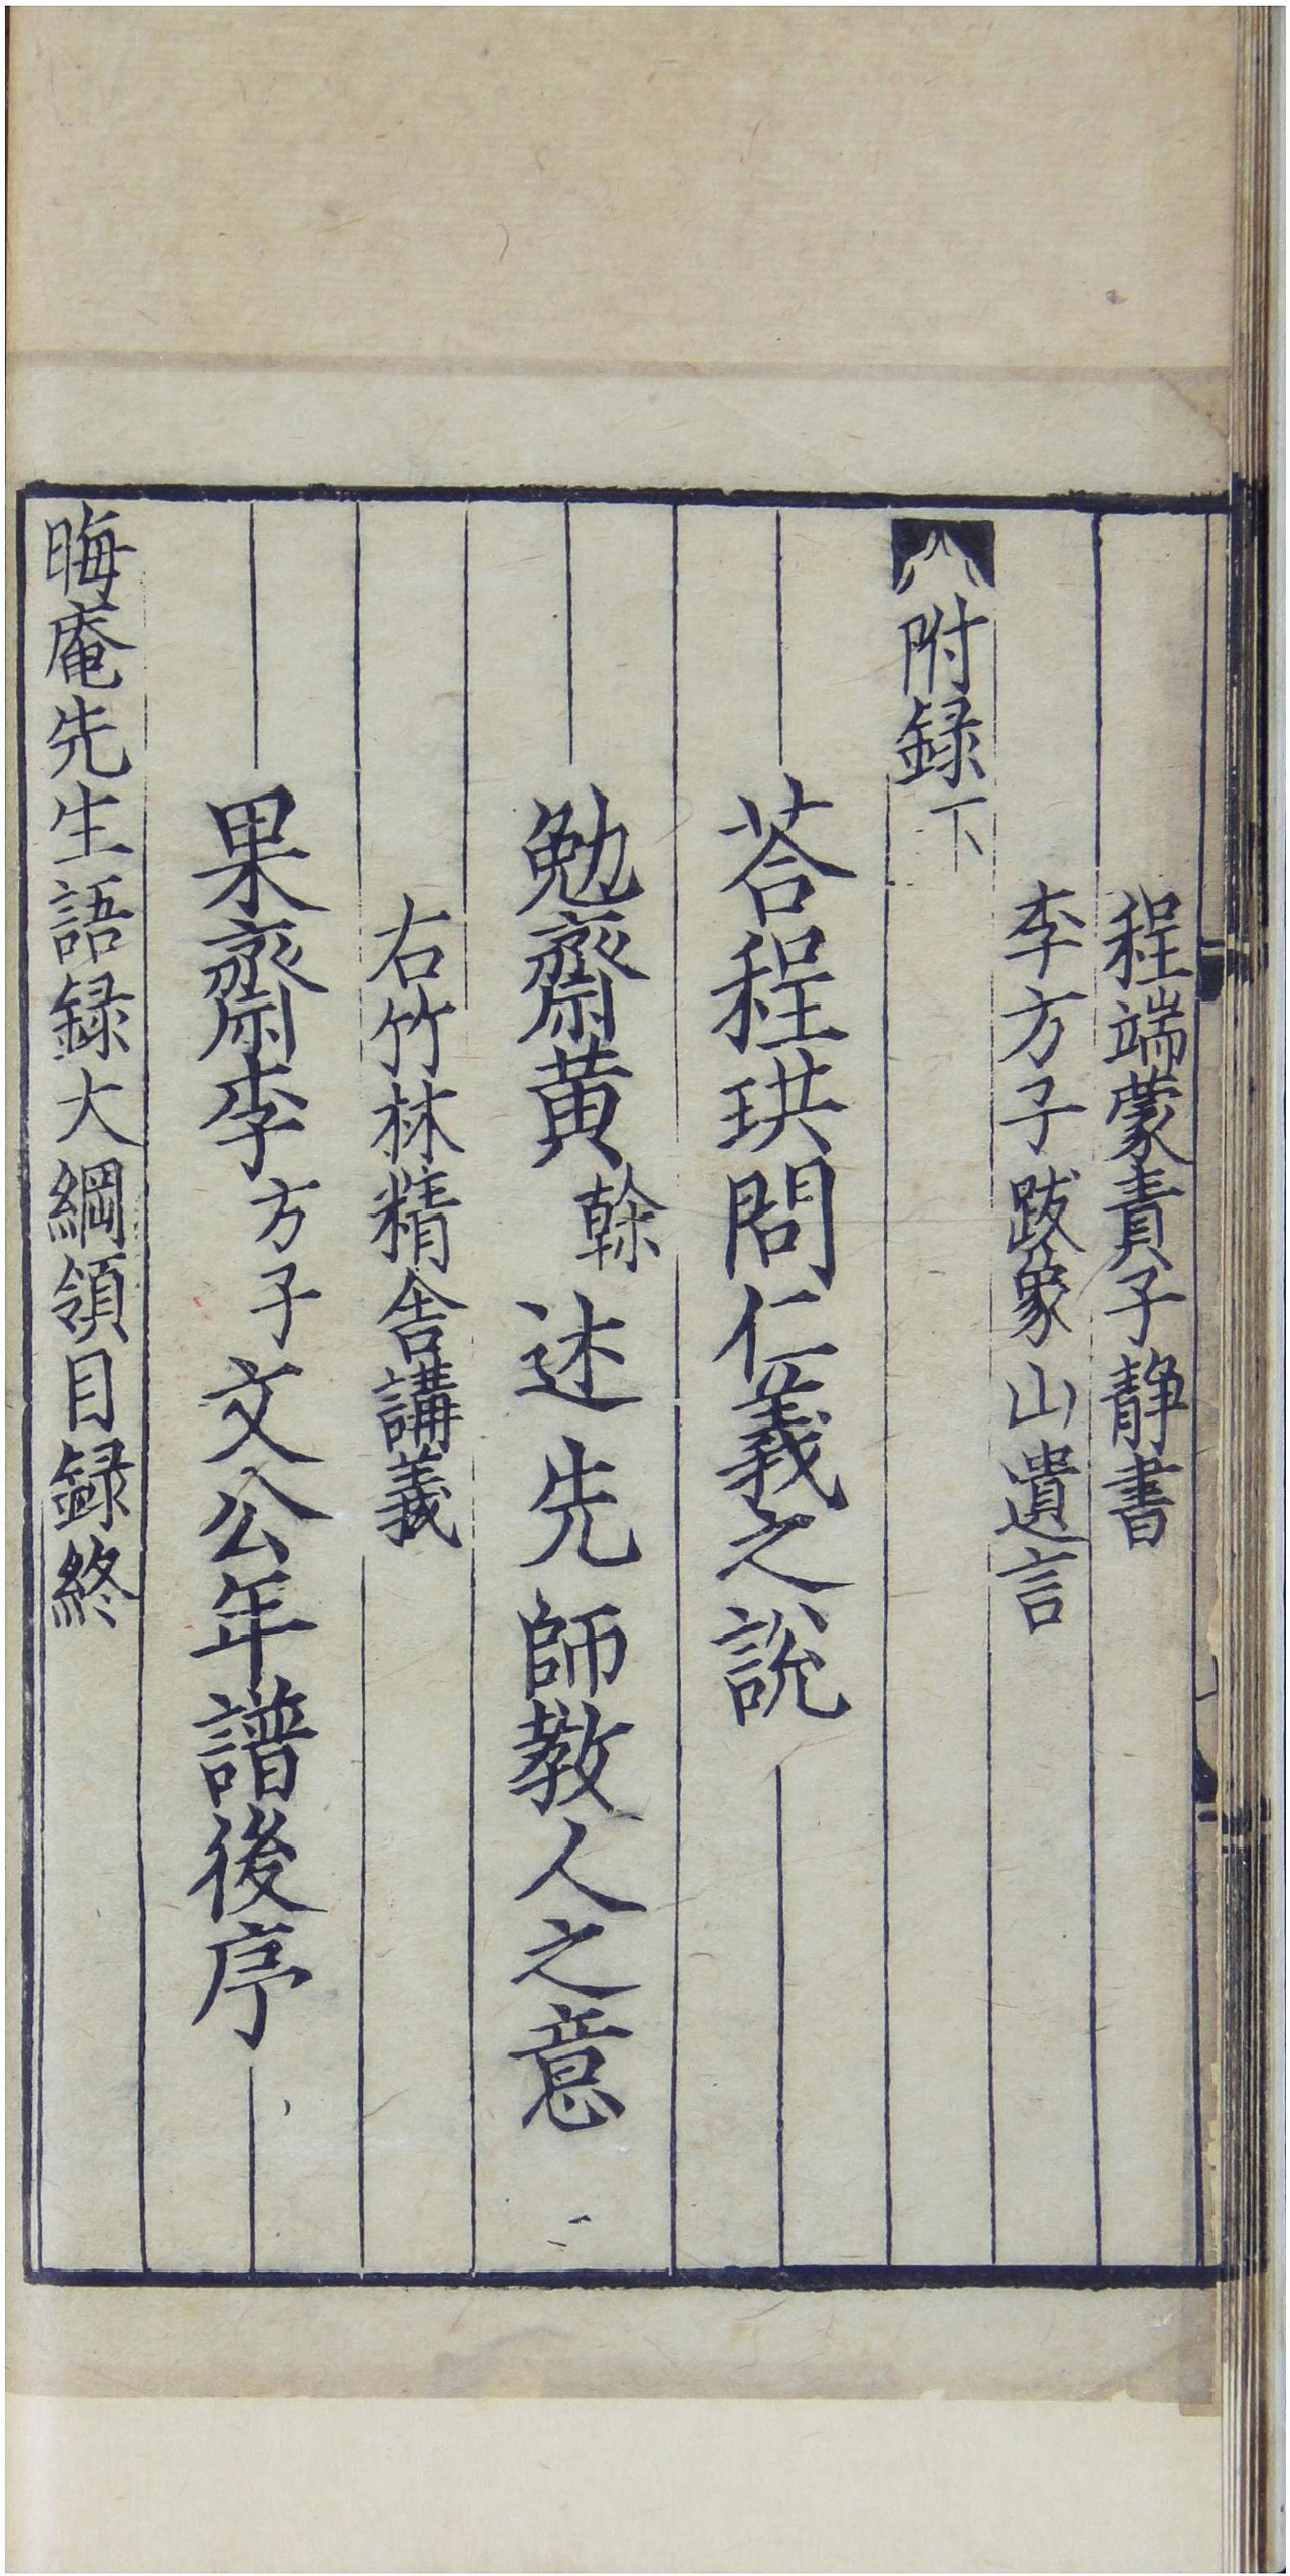 程端蒙責子静書
李方子跋象山遺言
附録下
荅程珙問仁義之說
勉齋黄榦述先師教人之意
右竹林精舍講義
果齋李方子文公年譜後序
晦庵先生語録大綱領目録終